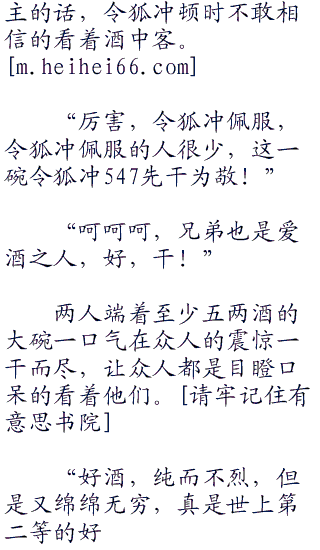 主的话，令狐冲顿时不敢相
信的看着酒中客。
[m.heihei66.com]
“厉害，令狐冲佩服，
令狐冲佩服的人很少，这一
碗令狐冲547先干为敬！”
“呵呵呵，兄弟也是爱
酒之人，好，干！”
两人端着至少五两酒的
大碗一口气在众人的震惊一
干而尽，让众人都是目瞪口
呆的看着他们。[请牢记住有
意思书院]
“好酒，纯而不烈，但
是又绵绵无穷，真是世上第
二等的好